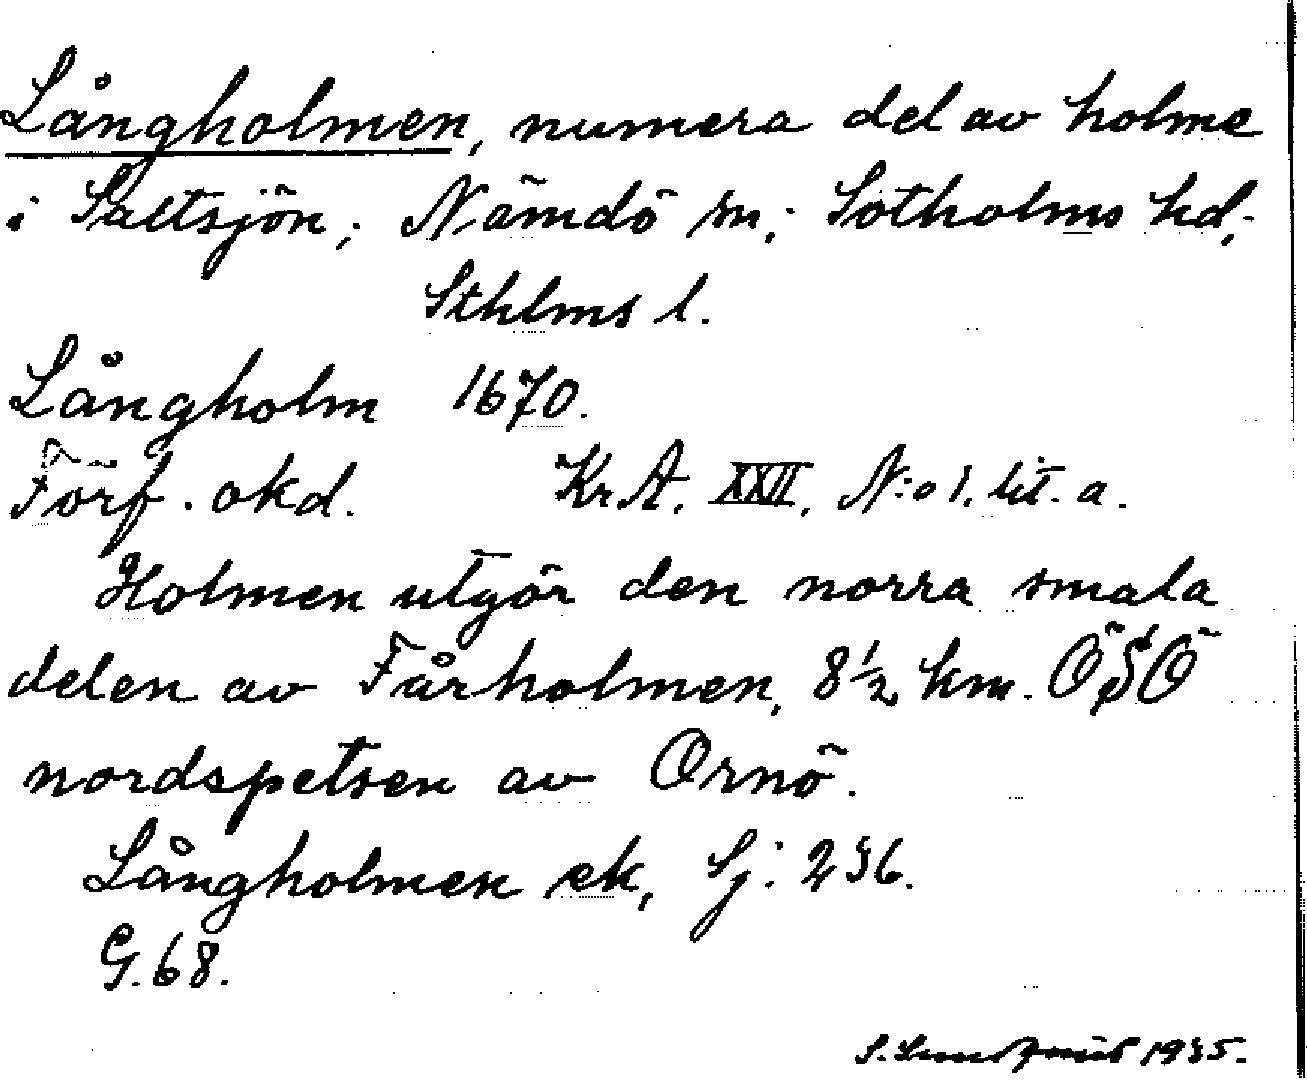 Långholmen, numera del av holme
i Saltsjön; Nämdö sn.; Sotholms hd;
Sthlms l.
Långholm 1670.
Förf. okd. Kr A. XXII, N:o 1. lit. a.
Holmen utgör den norra smala
delen av Fårholmen, 8½ km. ÖSÖ
nordspetsen av Ornö.
Långholmen ek, Sj: 236.
G. 68.
S. Lundqvist 1935.